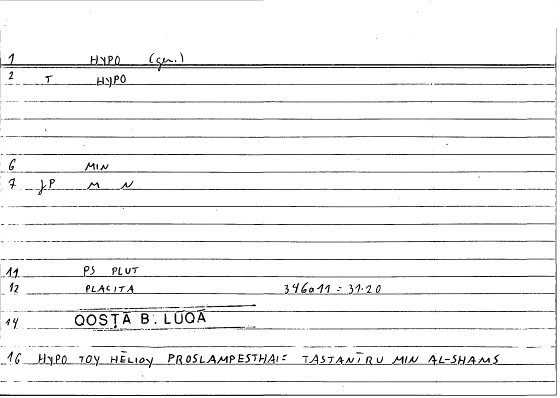 1 HYPO (gen.)
2 T HYPO
6 MIN
7 JP M N
11 PS PLUT
12 PLACITA 346a11 = 31.20
14 QOSṬĀ B. LUQĀ
16 HYPO TOY HĒLIOY PROSLAMPESTHAI = TASTANĪRU MIN AL-SHAMS